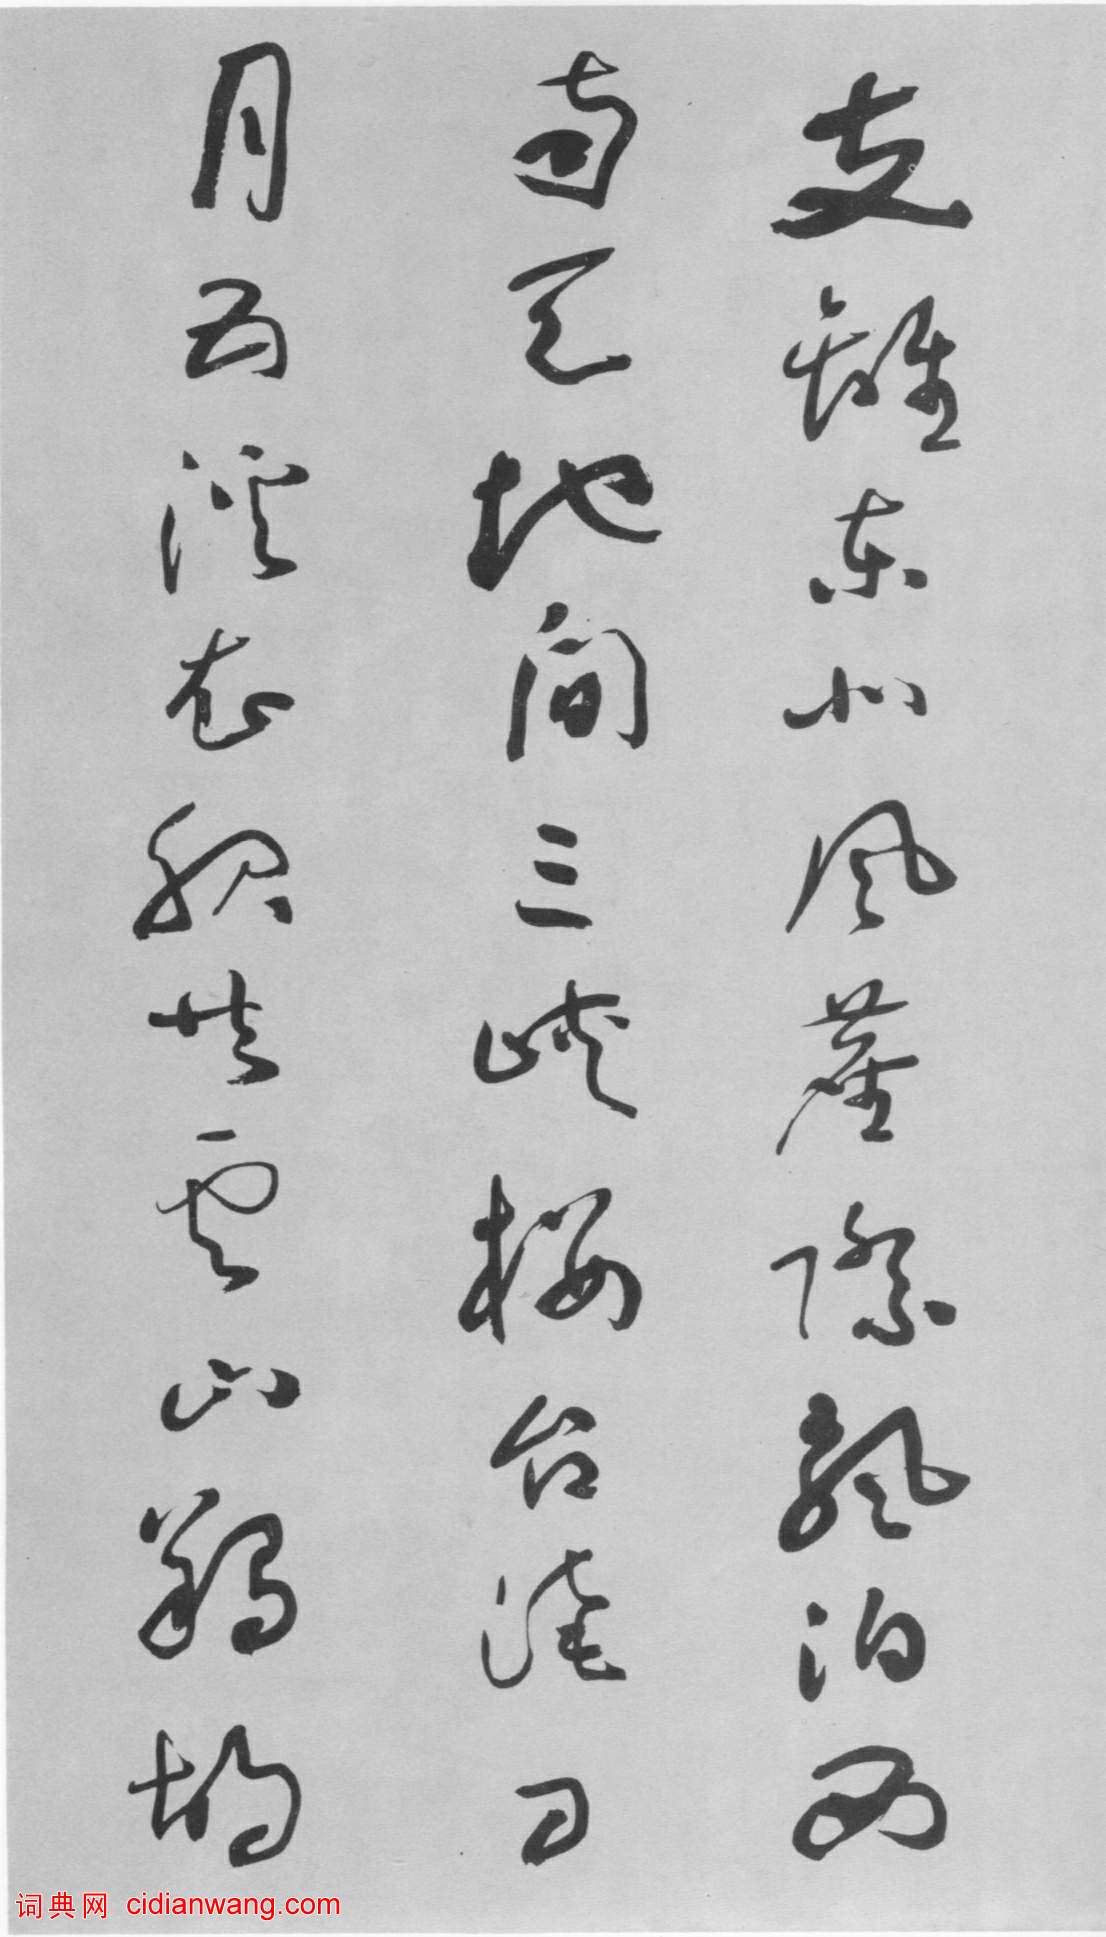 支離東北風塵際飄泊西
南天地間三峽樓台淹日
月五溪衣服共雲山羯胡
词典网 cidianwang.com